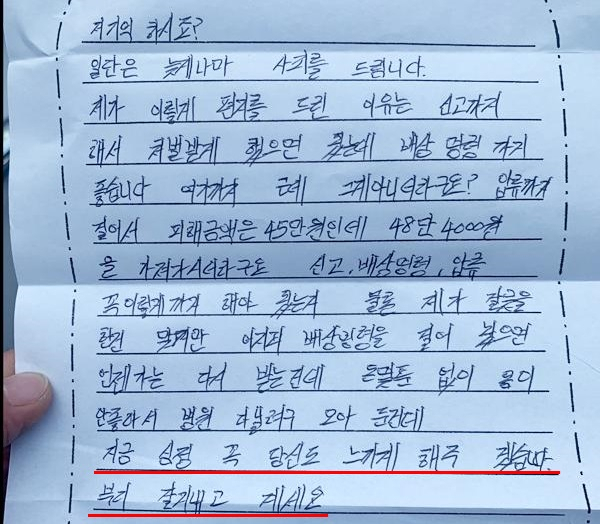 저기억 하시죠?
일단은 늦게나마 사죄를 드립니다.
제가 이렇게 편지를 드린 이유는 신고까지
해서 처벌받게 했으면 됐는데 배상 명령 까지
좋습니다 여기까지 근데 그게아니더라구요? 압류까지
걸어서 피해금액은 45만원인데 48만 4000원
을 가져가시더라구요 신고, 배상명령, 압류
꼭이렇게까지 해야 했는지 물론 제가 잘못을
한건 맞지만 어차피 배상명령을 걸어 놨으면
언젠가는 다시 받는건데 온몸 없이
안좋아서 병원 다닐려구 모아 둔건데
지금 심정 꼭 당신도 느끼게 해주 겠습니다.
부디 잘지내고 계세요